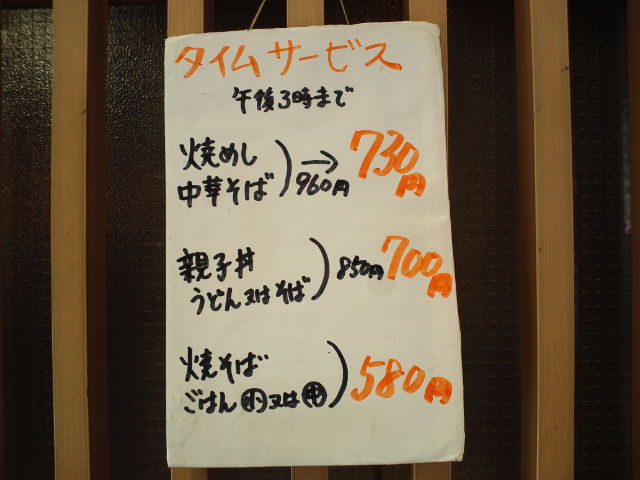 タイムサービス
午後3時まで
焼めし
中華そば
960円
→
730円
親子丼
うどん又はそば
850円
700円
焼そば
ごはん㊙又は㊥
580円